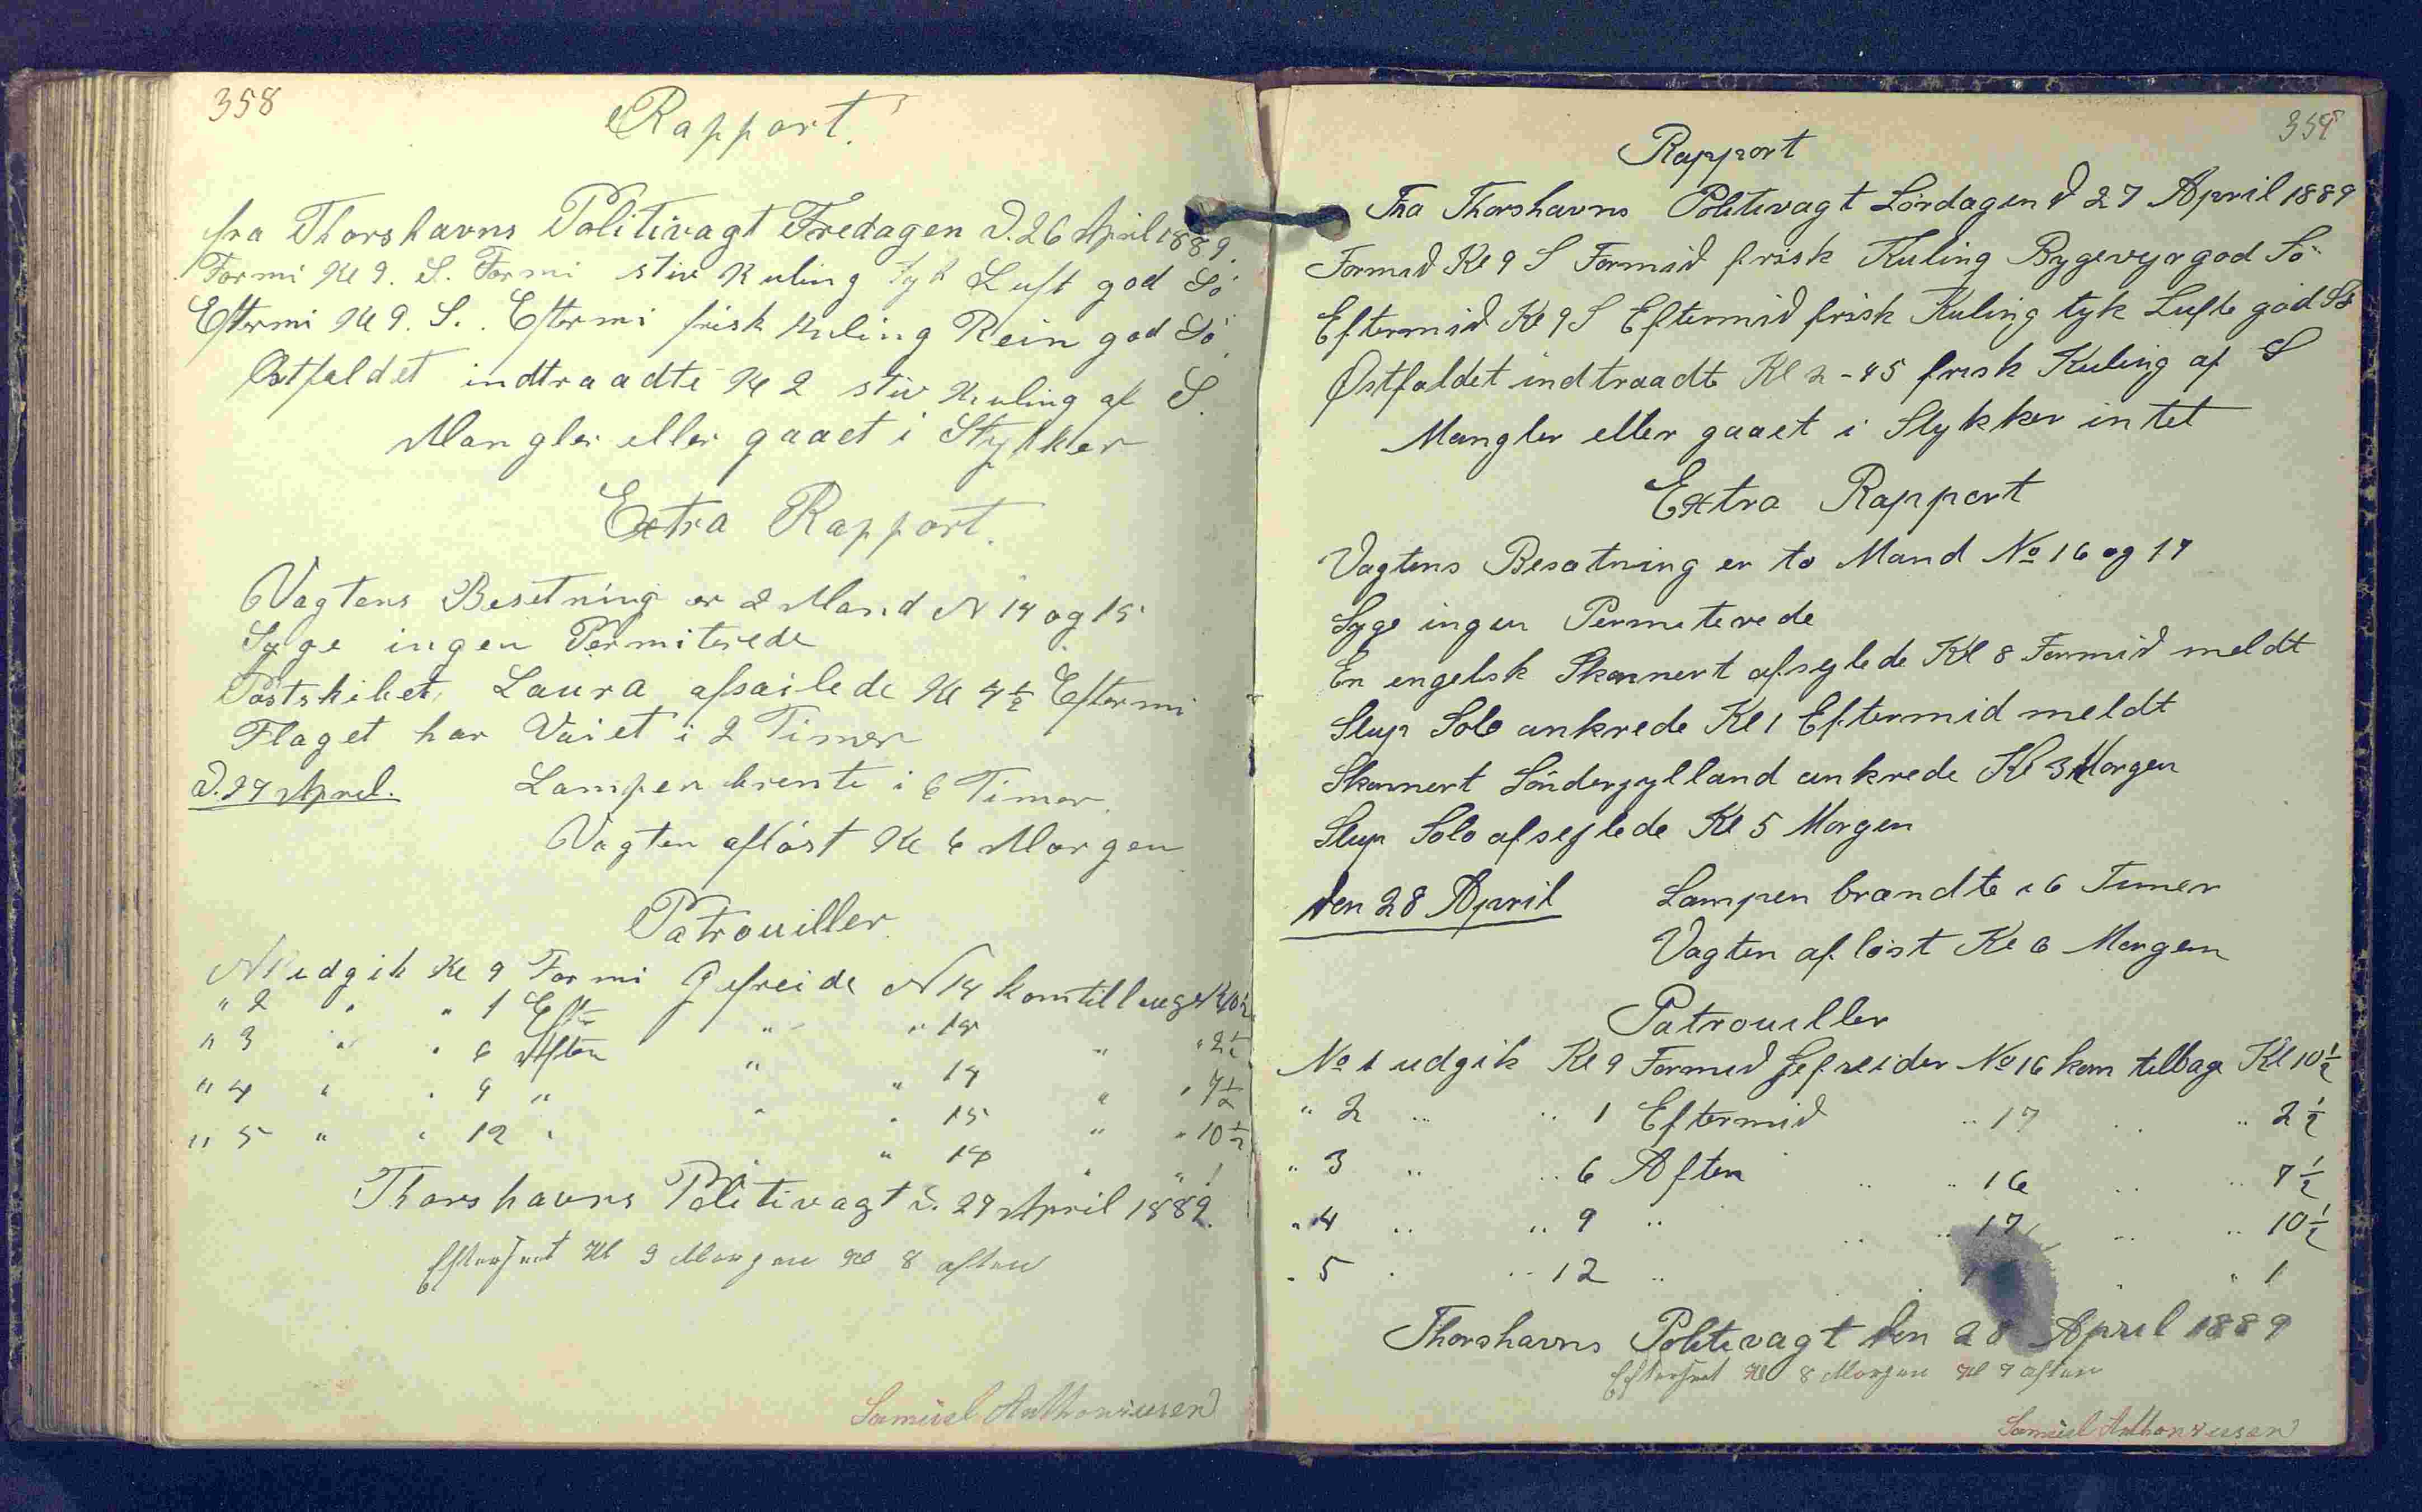 358
Rapport.
fra Thorshavns Politivagt Fredagen d. 26 April 1889.
Formi Kl 9. S. Formi stiv Kuling Tyk Luft god Sö
Eftermi Kl 9. S. Eftermi frisk Kuling Rein god Sö.
Ostfaldet indtraadte Kl 2 stiv Kuling af S.
Mangler eller gaaet i Stykker
Extra Rapport.
Vagtens Besetning er 2 Mand N 14 og 15
Syge ingen Permiterede
Postskibet Laura afsailede Kl 4½ Eftermi
Flaget har Vaiet i 2 Timer
d. 27 April. Lampen brente i 6 Timer.
Vagten aflöst Kl 6 Morgen
Patrouiller.
N 1 udgik Kl 9 Formi Gefreide N 14 kom tilbage Kl 10½
" 2 " " 1 Efter " " 15 " " 2½
" 3 " " 6 Aften " " 14 " " 7½
" 4 " " 9 " " " 15 " " 10½
" 5 " " 12 " " " 14 " " 1
Thorshavns Politivagt d. 27 April 1889.
Efterseet Kl 9 Morgen Kl 8 aften
Samuel Anthoniusen
359
Rapport
Fra Thorshavns Politivagt Lördagen d 27 April 1889
Formid Kl 9 S Formid frisk Kuling Bygevejr god Sö
Eftermid Kl 9 S Eftermid frisk Kuling tyk Luft god Sö
Østfaldet indtraadte Kl 2-45 frisk Kuling af S
Mangler eller gaaet i Stykker intet
Extra Rapport
Vagtens Besætning er to Mand No 16 og 17
Syge ingen Permiterede
En engelsk Skonnert afsejlede Kl 8 Formid meldt
Slup Solo ankrede Kl 1 Eftermid meldt
Skonnert Sönderjylland ankrede Kl 3 Morgen
Slup Solo afsejlede Kl 5 Morgen
den 28 April Lampen brændte i 6 Timer
Vagten aflöst Kl 6 Morgen
Patrouiller
No 1 udgik Kl 9 Formid Gefreider No 16 kom tilbage Kl 10½
" 2 " " 1 Eftermid " 17 " " 2½
" 3 " " 6 Aften " " 16 " " 7½
" 4 " " 9 " " " 17 " " 10½
" 5 " " 12 " " " " 1
Thorshavns Politivagt den 28 April 1889
Efterseet Kl 8 Morgen Kl 7 aften
Samuel Anthoniusen